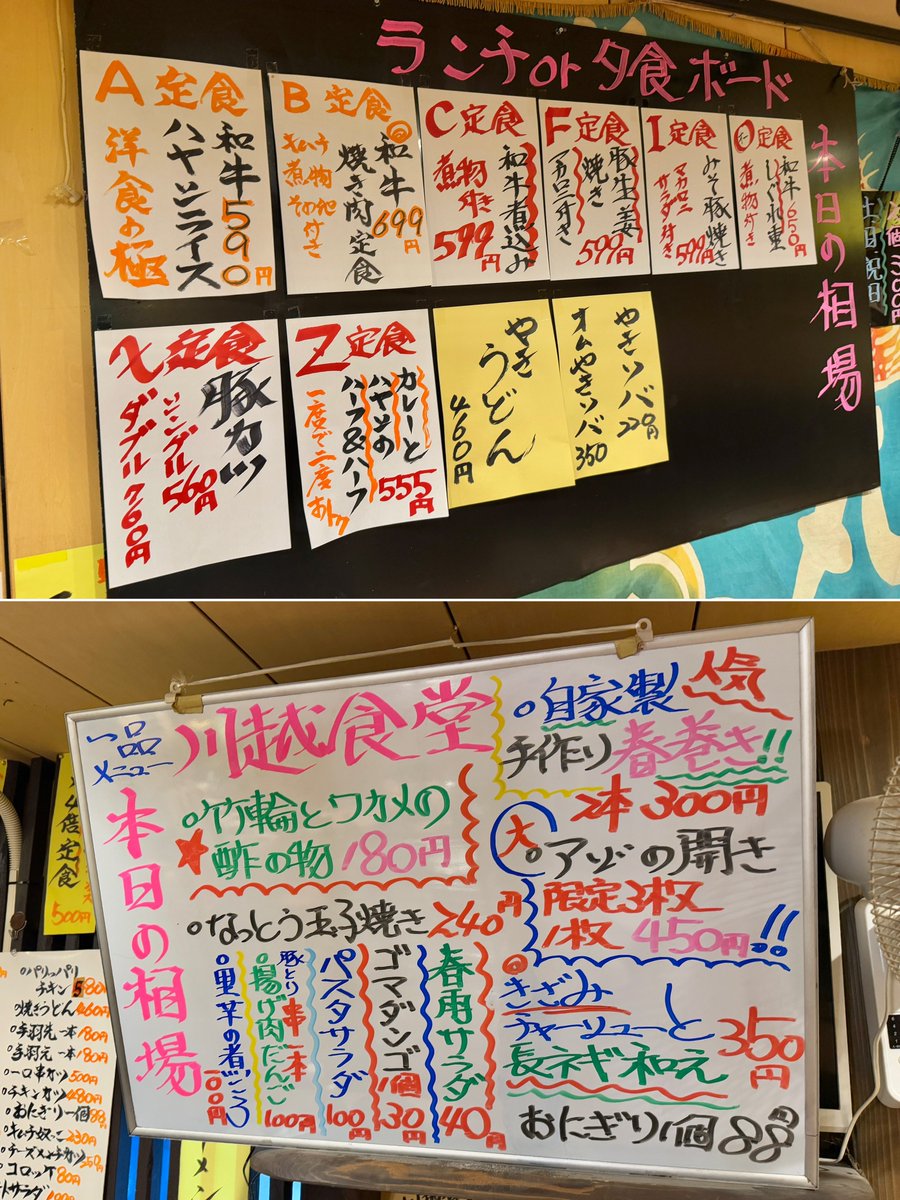 ランチor夕食ボード
本日の相場
A定食
和牛590円
ハヤシライス
洋食の極
B定食
和牛699円
焼き肉定食
煮物その他付き
C定食
和牛煮込み
煮物付き
599円
F定食
豚生姜
焼き599円
マカロニ付き
I定食
みそ豚焼き
599円
マカロニ
サラダ付き
O定食
和牛650円
しぐれ重
煮物付き
X定食
豚カツ
シングル560円
ダブル760円
Z定食
カレーと
ハヤシの
ハーフ&ハーフ
555円
一度で二度おトク
やき
うどん
460円
やきソバ220円
オムやきソバ350
土日祝日
一品
メニュー
川越食堂
本日の相場
竹輪とワカメの
酢の物180円
なっとう玉子焼き240円
春雨サラダ
40円
ゴマダンゴ
1個
130円
パスタサラダ
100円
豚とり串一本
揚げ肉だんご
100円
里芋の煮ころ
100円
人気
自家製
手作り春巻き!!
2本300円
大
アジの開き
限定3枚
1枚450円!!
きざみ
チャーシューと
長ネギ和え
350円
おにぎり1個88円
定食
500円
パリっパリ
チキン580
焼きうどん460円
手羽先一本180円
手羽元一本180円
一口串カツ500円
チキンカツ480円
おにぎり一個88
キムチ奴っこ230円
コロッケ80円